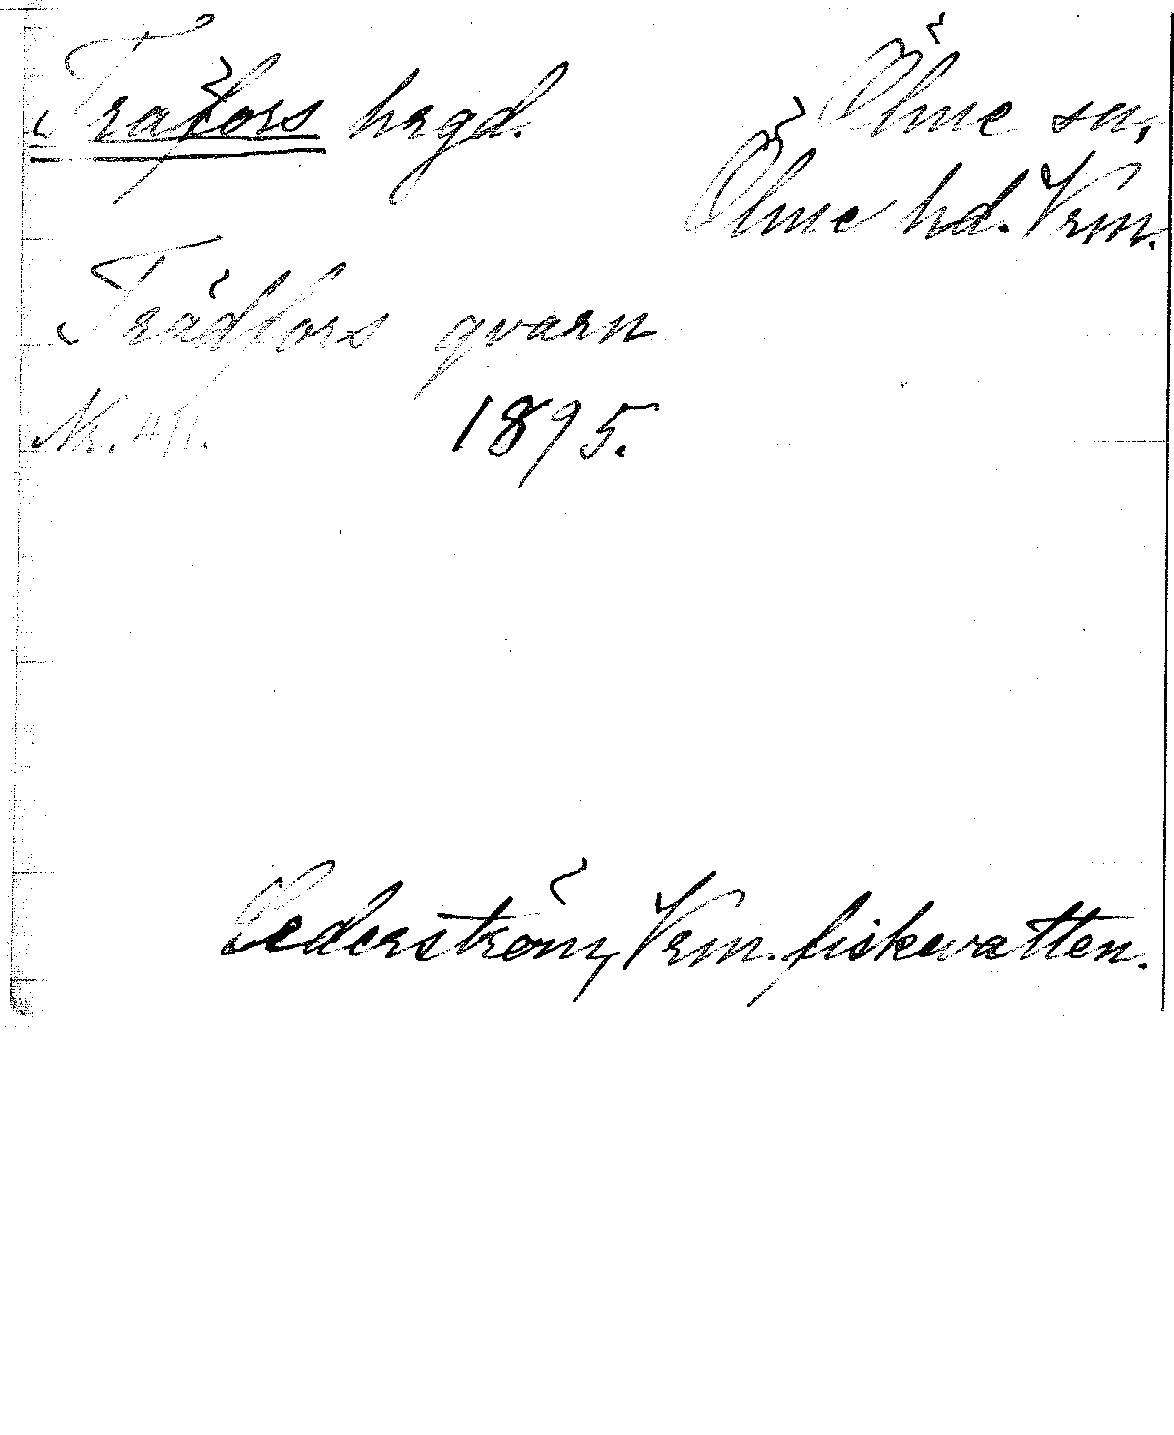 Träfors hrgd.
Ölme sn,
Ölme hd. Vrm.
Trådfors qvarn
Nr. 411. 1895.
Cederström, Vrm. fiskevatten.